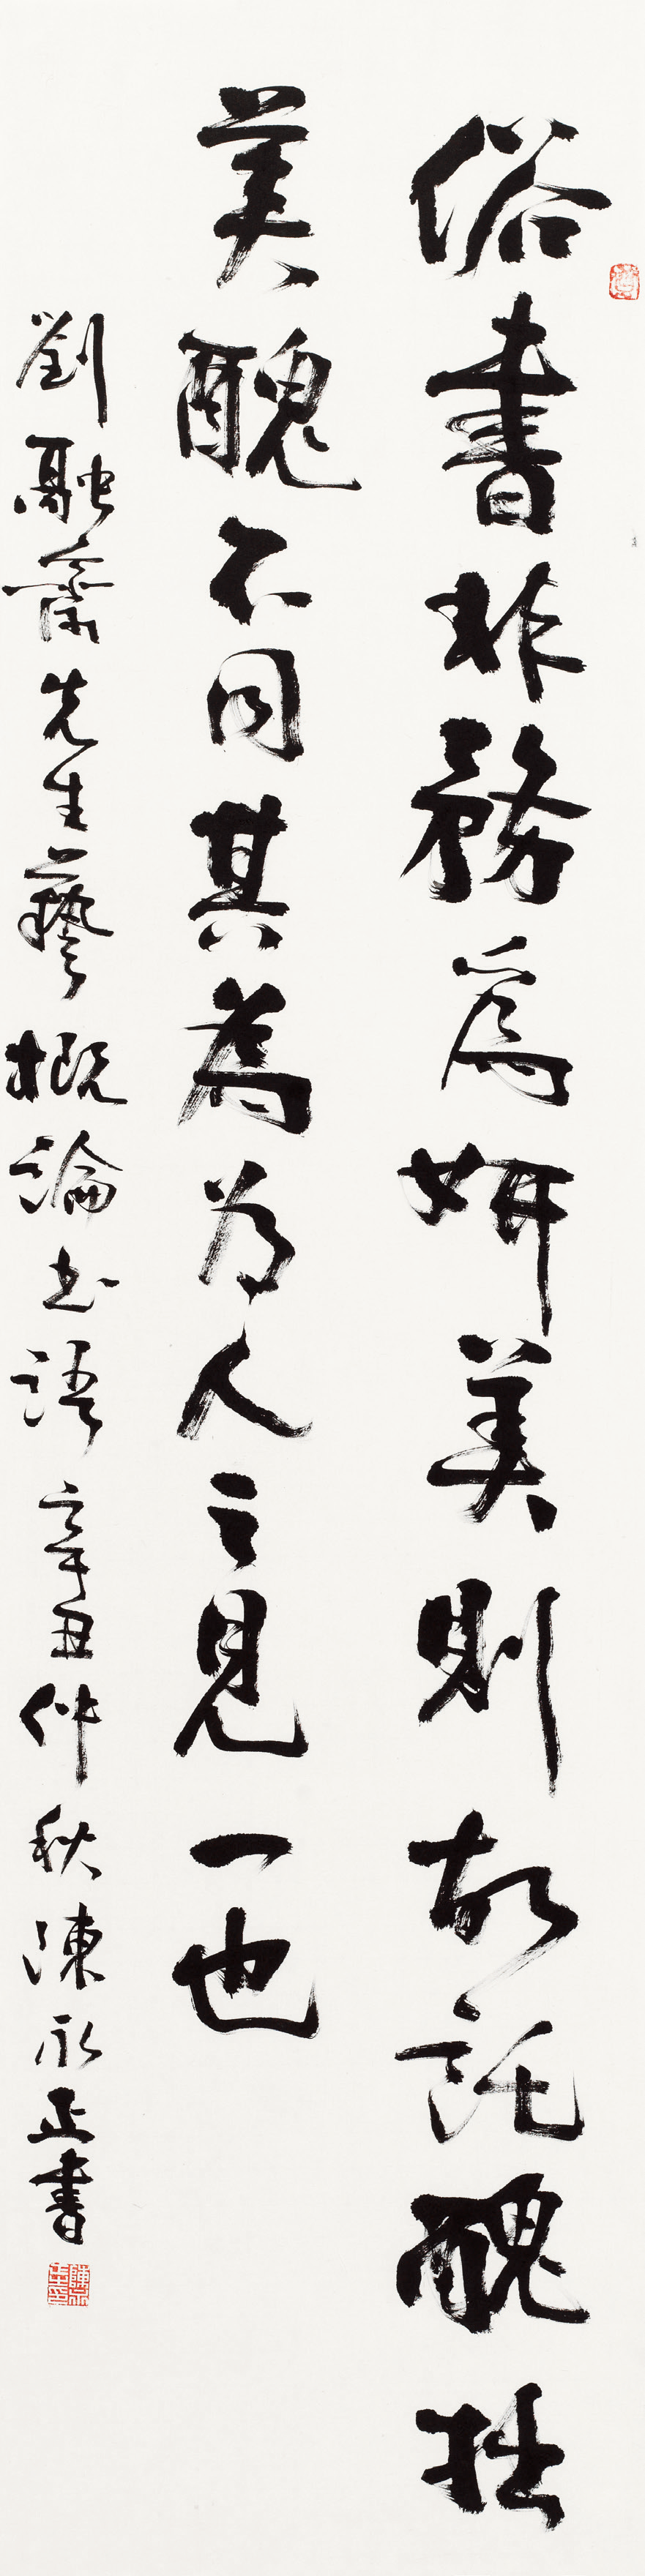 俗書非務為妍美則故託醜拙
美醜不同其為為人之見一也
劉融齋先生藝概論书語辛丑仲秋陳永正書